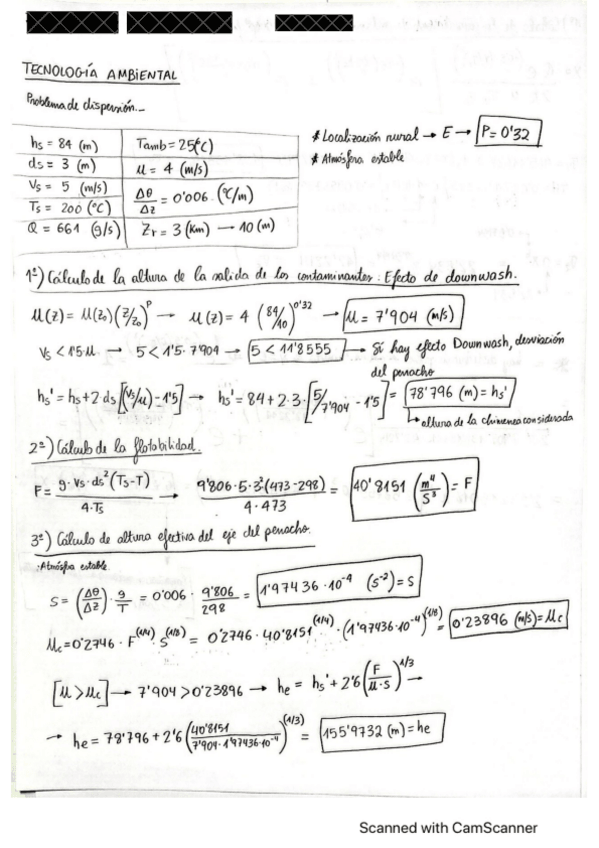 TECNOLOGÍA AMBIENTAL
Problema de dispersión.-
hs = 84 (m)
ds = 3 (m)
Vs = 5 (m/s)
Ts = 200 (°C)
Q = 661 (g/s)
Tamb = 25(°C)
u = 4 (m/s)
Δθ/Δz = 0'006 · (°C/m)
Zr = 3 (Km) → 10 (m)
* Localización rural → E → P = 0'32
* Atmósfera estable
1º) Cálculo de la altura de la salida de los contaminantes: Efecto de downwash.
u(z) = u(z₀)(z/z₀)^P → u(z) = 4 (84/10)^0'32 → u = 7'904 (m/s)
Vs < 1'5 u. → 5 < 1'5 · 7'904 → 5 < 11'8555 → Sí hay efecto Downwash, desviación
del penacho
hs' = hs + 2 ds [(Vs/u) - 1'5] → hs' = 84 + 2 · 3 · [5/7'904 - 1'5] = 78'796 (m) = hs'
→ altura de la chimenea considerada
2º) Cálculo de la flotabilidad.
F = g · vs · ds² (Ts - T) / 4 · Ts → 9'806 · 5 · 3² (473 - 298) / 4 · 473 = 40'8151 (m⁴/s³) = F
3º) Cálculo de altura efectiva del eje del penacho.
· Atmósfra estable.
S = (Δθ/Δz) · g/T = 0'006 · 9'806/298 = 1'97436 · 10⁻⁴ (s⁻²) = s
uc = 0'2746 · F^(1/4) S^(1/8) = 0'2746 · 40'8151^(1/4) · (1'97436 · 10⁻⁴)^(1/8) = 0'23896 (m/s) = uc
[u > uc] → 7'904 > 0'23896 → he = hs' + 2'6 (F/u · s)^1/3 →
→ he = 78'796 + 2'6 (40'8151/7'904 · 1'97436 · 10⁻⁴)^(1/3) = 155'9732 (m) = he
Scanned with CamScanner